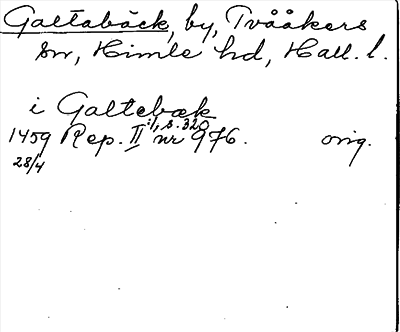 Galtabäck, by, Tvååkers
sn, Himle hd, Hall. l.
i Galtebæk
1459 Rep. II :1, s. 320 nr 976. orig.
28/4